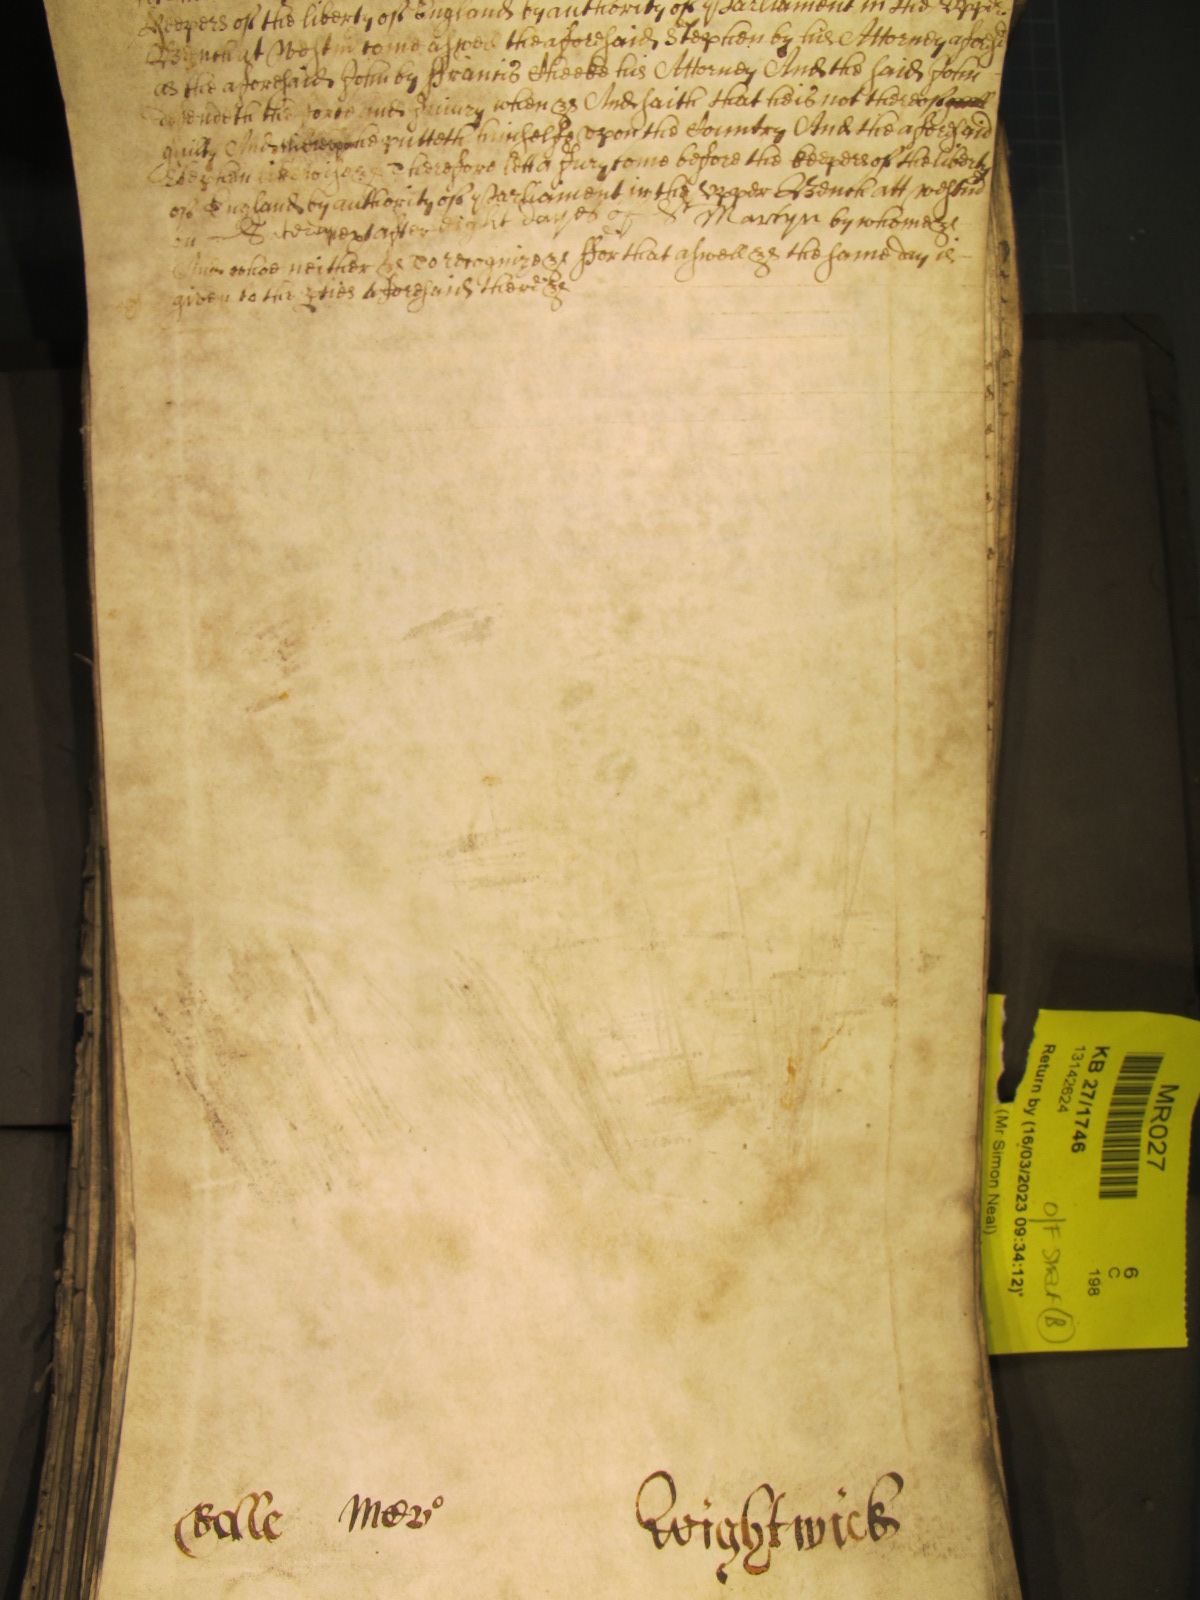 Keepers of the liberty of England by authority of y Parliament in the Upper
Bench at Westm come aswell the aforesaid Stephen by his Attorney aforesd
as the aforesaid John by Francis Cheeke his Attorney And the said John
defendeth the force and Injury when &c And saith that he is not thereof
guilty And thereupon he putteth himselfe upon the Country And the aforesaid
Stephen likewise &c Therefore lett a Jury come before the keepers of the liberty
of England by authority of y Parliament in the Upper Bench att Westm
on next after eight dayes of St Martyn by whome &c
And whoe neither &c To recognize &c For that aswell &c the same day is
given to the pties aforesaid there &c
Rolle Merc
Wightwick
MR027
KB 27/1746
13142624
Return by (16/03/2023 09:34:12)'
(Mr Simon Neal)
6
C
198
O/F SHELF (B)